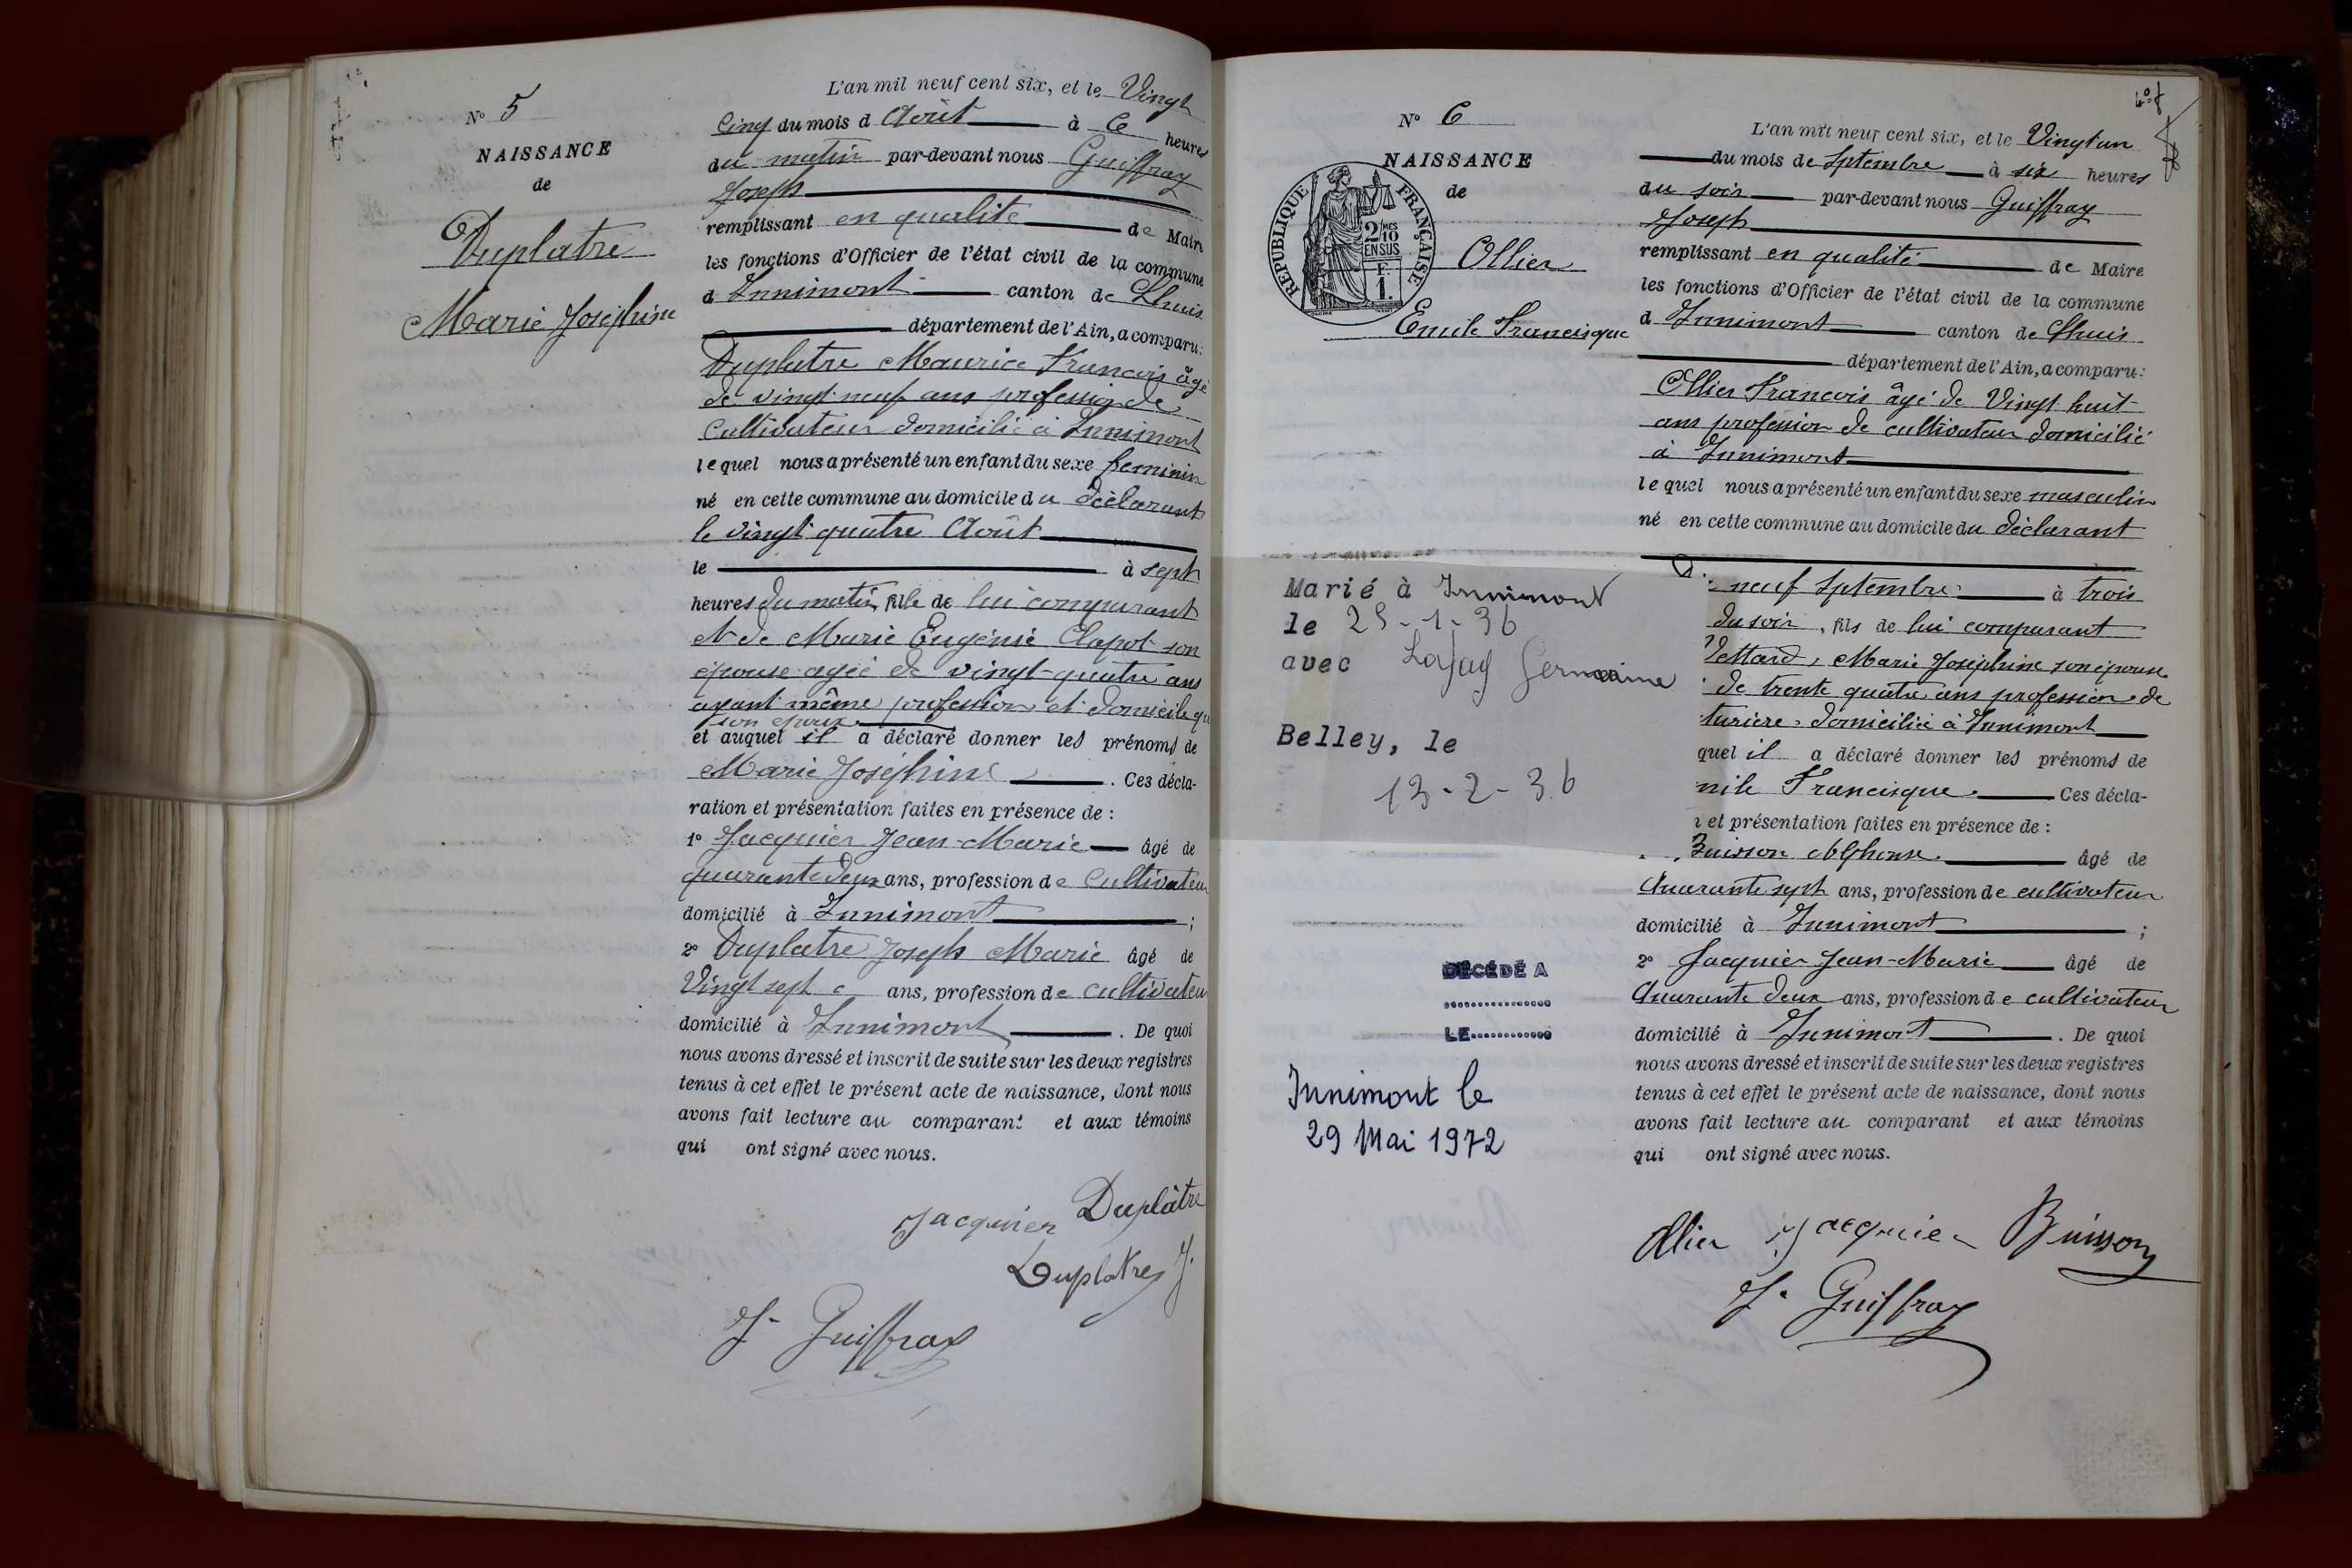 N° 5
NAISSANCE
de
Duplatre
Marie Joséphine
L'an mil neuf cent six, et le Vingt
Cinq du mois d Août à 6 heures
du matin par-devant nous Guiffray
Joseph
remplissant en qualité de Maire
les fonctions d'Officier de l'état civil de la commune
d Innimont canton de Lhuis
département de l'Ain, a comparu:
Duplatre Maurice Francois âgé
de vingt neuf ans profession de
Cultivateur domicilié à Innimont
lequel nous a présenté un enfant du sexe feminin
né en cette commune au domicile du déclarant
le vingt quatre Août
le à sept
heures du matin, fille de lui comparant
et de Marie Eugénie Clapot son
épouse agée de vingt-quatre ans
ayant même profession et domicile qu
son epoux
et auquel il a déclaré donner les prénoms de
Marie Joséphine . Ces décla-
ration et présentation faites en présence de :
1° Jacquier Jean-Marie âgé de
quarante deux ans, profession de Cultivateur
domicilié à Innimont ;
2° Duplatre Joseph Marie âgé de
Vingt sept ans, profession de cultivateur
domicilié à Innimont . De quoi
nous avons dressé et inscrit de suite sur les deux registres
tenus à cet effet le présent acte de naissance, dont nous
avons fait lecture au comparant et aux témoins
qui ont signé avec nous.
Jacquier Duplâtre
Duplatre J.
J. Guiffray
N° 6
NAISSANCE
de
RÉPUBLIQUE FRANÇAISE
2 MES
10
EN SUS
F.
1.
Ollier
Emile Francisque
Marié à Innimont
le 25-1-36
avec Lajay Germaine
Belley, le
13-2-36
DÉCÉDÉ A
LE
Innimont le
29 Mai 1972
L'an mil neuf cent six, et le Vingt un
du mois de Sptembre à six heures
du soir par-devant nous Guiffray
Joseph
remplissant en qualité de Maire
les fonctions d'Officier de l'état civil de la commune
d Innimont canton de Lhuis
département de l'Ain, a comparu:
Ollier Francois âgé de Vingt huit
ans profession de cultivateur domicilié
à Innimont
lequel nous a présenté un enfant du sexe masculin
né en cette commune au domicile du déclarant
neuf Sptembre à trois
du soir, fils de lui comparant
Vettard, Marie Joséphine son épouse
de trente quatre ans profession de
turière, domiciliée à Innimont
quel il a déclaré donner les prénoms de
mile Francisque. Ces décla-
n et présentation faites en présence de :
Buisson Alphonse âgé de
Quarante sept ans, profession de cultivateur
domicilié à Innimont ;
2° Jacquier Jean-Marie âgé de
Quarante deux ans, profession de cultivateur
domicilié à Innimont . De quoi
nous avons dressé et inscrit de suite sur les deux registres
tenus à cet effet le présent acte de naissance, dont nous
avons fait lecture au comparant et aux témoins
qui ont signé avec nous.
Ollier Jacquier Buisson
J. Guiffray